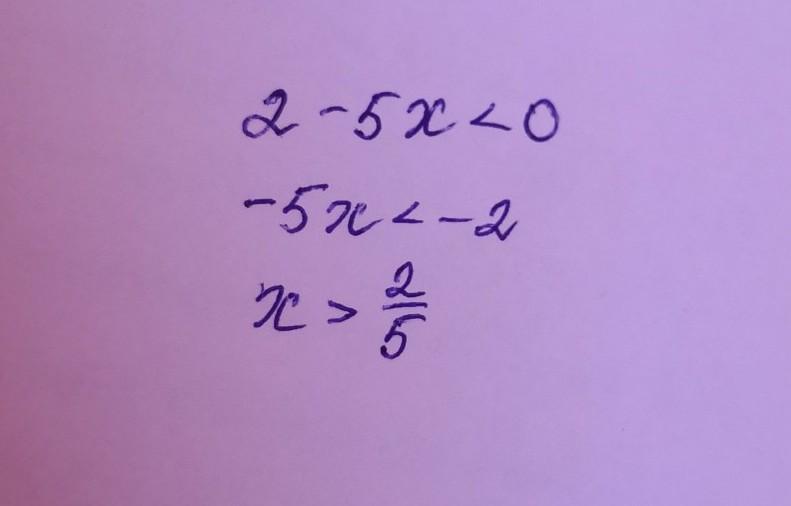 2 - 5x < 0
-5x < -2
x > 2/5